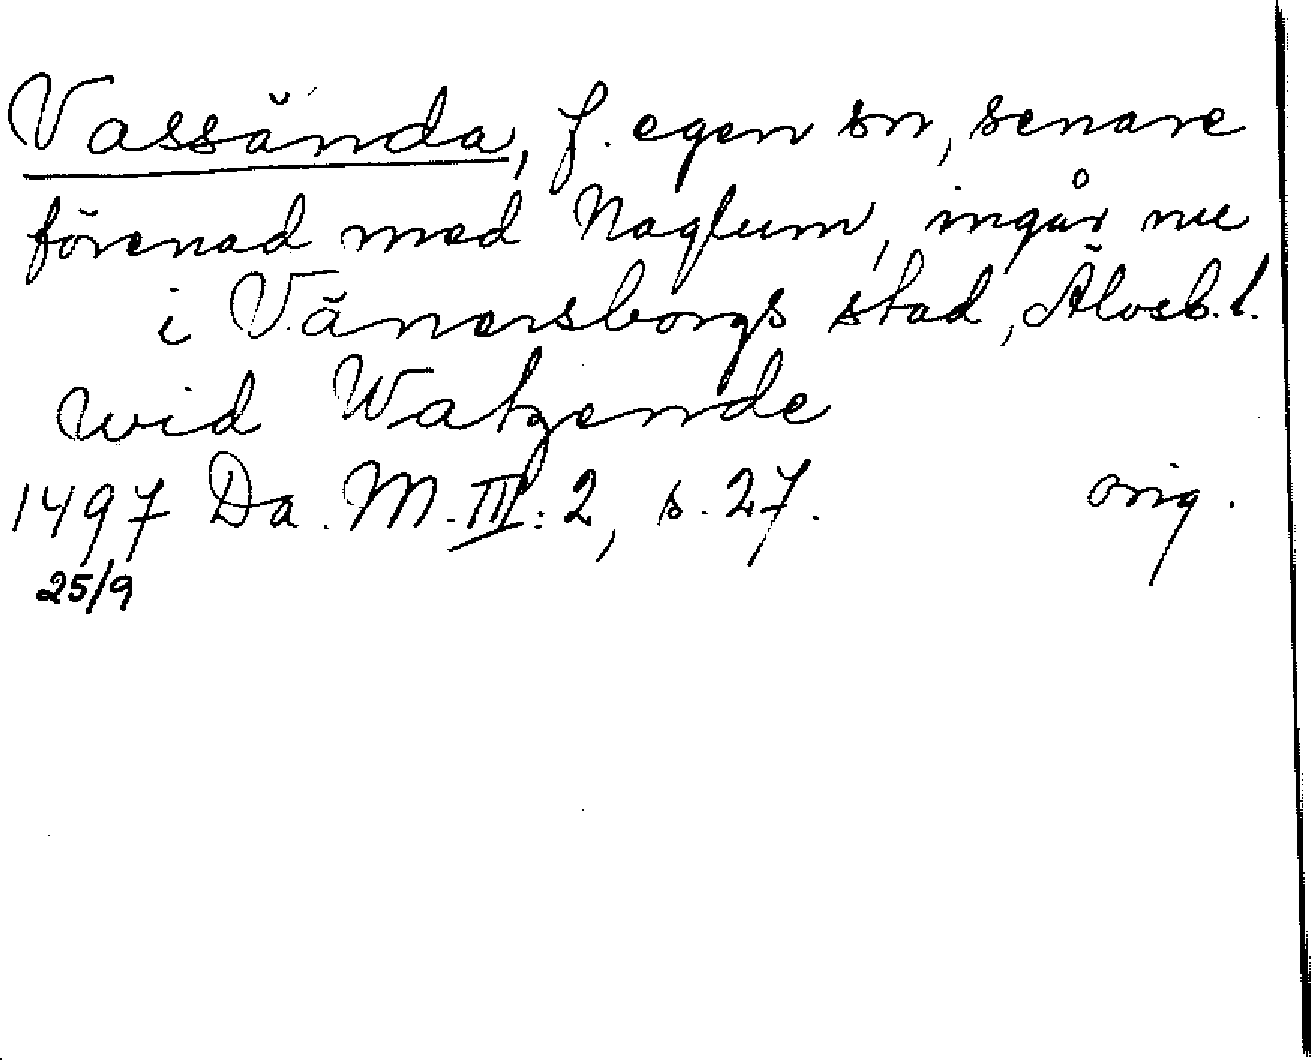 Vassända, f. egen sn, senare
förenad med Naglum, ingår nu
i Vänersborgs stad, Älvsb. l.
wid Watzende
1497 Da. M. III: 2, s. 27. orig.
25/9